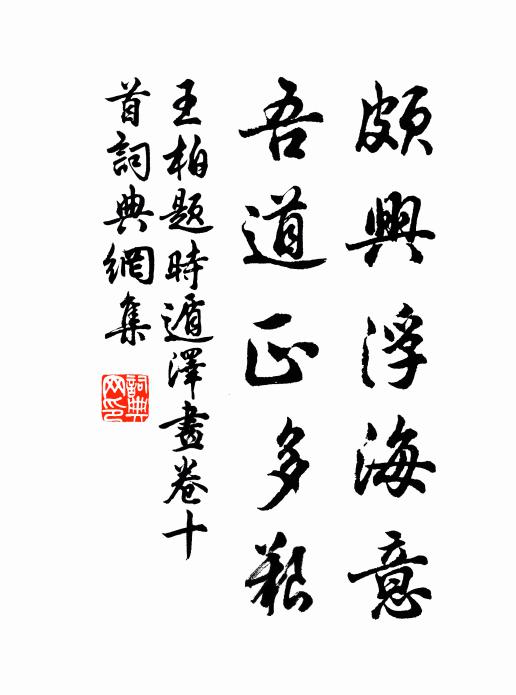 頗興浮海意
吾道正多艱
王柏題時遁澤畫卷十
首詞典網集
詞典網印